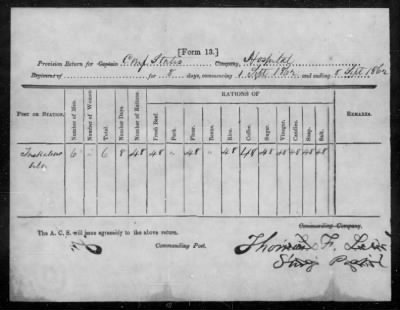 [Form 13.]
Provision Return for Captain Conf. States Company, Hospital
Regiment of for 8 days, commencing 1 Sept 1862 and ending 8 Sept 1862
RATIONS OF
Post or Station Number of Men. Number of Women. Total. Number Days. Number of Rations. Fresh Beef. Pork. Flour. Beans. Rice. Coffee. Sugar. Vinegar. Candles. Soap. Salt. Remarks.
6 " 6 8 48 48 " 48 " 48 48 48 48 48 48 48
The A. C. S. will issue agreeably to the above return.
Commanding Company.
Commanding Post.
Thomas F.
Surg